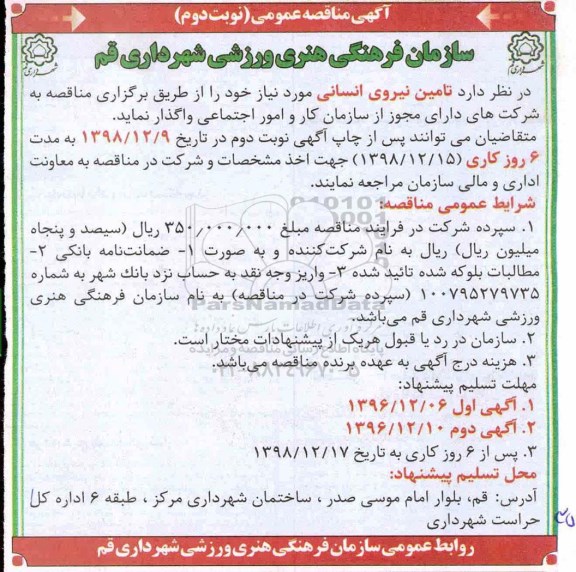 آگهی مناقصه عمومی (نوبت دوم)
سازمان فرهنگی هنری ورزشی شهرداری قم
در نظر دارد تامین نیروی انسانی مورد نیاز خود را از طریق برگزاری مناقصه به
شرکت های دارای مجوز از سازمان کار و امور اجتماعی واگذار نماید.
متقاضیان می توانند پس از چاپ آگهی نوبت دوم در تاریخ ۱۳۹۸/۱۲/۹ به مدت
۶ روز کاری (۱۳۹۸/۱۲/۱۵) جهت اخذ مشخصات و شرکت در مناقصه به معاونت
اداری و مالی سازمان مراجعه نمایند.
شرایط عمومی مناقصه:
۱. سپرده شرکت در فرایند مناقصه مبلغ ۳۵۰٫۰۰۰٫۰۰۰ ریال (سیصد و پنجاه
میلیون ریال) ریال به نام شرکت‌کننده و به صورت ۱- ضمانت‌نامه بانکی ۲-
مطالبات بلوکه شده تائید شده ۳- واریز وجه نقد به حساب نزد بانک شهر به شماره
۱۰۰۷۹۵۲۷۹۷۳۵ (سپرده شرکت در مناقصه) به نام سازمان فرهنگی هنری
ورزشی شهرداری قم می‌باشد.
۲. سازمان در رد یا قبول هریک از پیشنهادات مختار است.
۳. هزینه درج آگهی به عهده برنده مناقصه می‌باشد.
مهلت تسلیم پیشنهاد:
۱. آگهی اول ۱۳۹۶/۱۲/۰۶
۲. آگهی دوم ۱۳۹۶/۱۲/۱۰
۳. پس از ۶ روز کاری به تاریخ ۱۳۹۸/۱۲/۱۷
محل تسلیم پیشنهاد:
آدرس: قم، بلوار امام موسی صدر ، ساختمان شهرداری مرکز ، طبقه ۶ اداره کل
حراست شهرداری
روابط عمومی سازمان فرهنگی هنری ورزشی شهرداری قم
ParsNamadData
پایگاه اطلاع رسانی مناقصه و مزایده